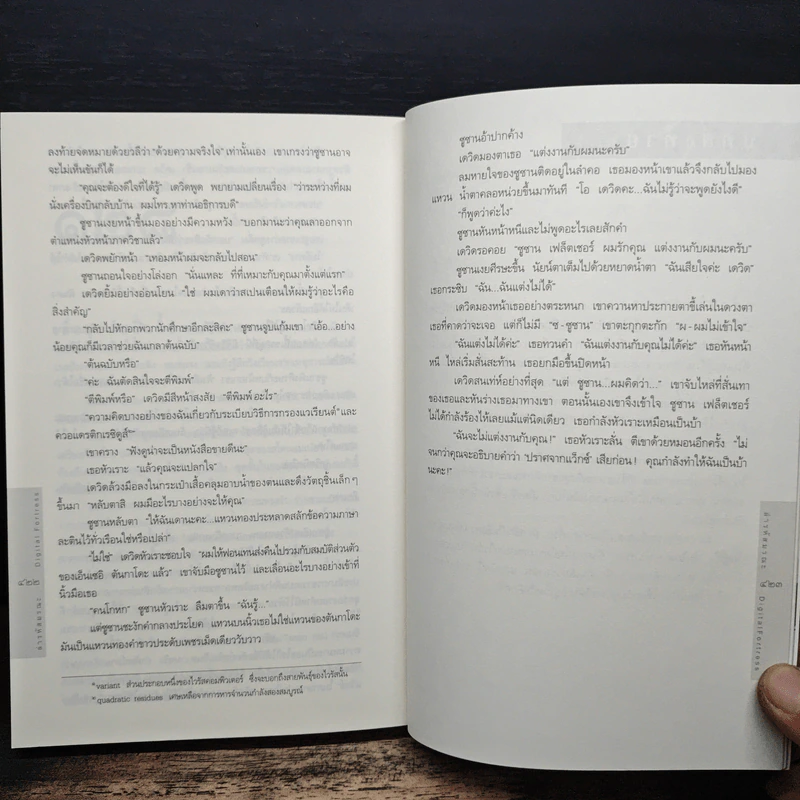 ลงท้ายจดหมายด้วยวลีว่า "ด้วยความจริงใจ" เท่านั้นเอง เขาเกรงว่าซูซานอาจ
จะไม่เห็นขันก็ได้
"คุณจะต้องดีใจที่ได้รู้" เดวิดพูด พยายามเปลี่ยนเรื่อง "ว่าระหว่างที่ผม
นั่งเครื่องบินกลับบ้าน ผมโทร.หาท่านอธิการบดี"
ซูซานเงยหน้าขึ้นมองอย่างมีความหวัง "บอกมานะว่าคุณลาออกจาก
ตำแหน่งหัวหน้าภาควิชาแล้ว"
เดวิดพยักหน้า "เทอมหน้าผมจะกลับไปสอน"
ซูซานถอนใจอย่างโล่งอก "นั่นแหละ ที่ที่เหมาะกับคุณมาตั้งแต่แรก"
เดวิดยิ้มอย่างอ่อนโยน "ใช่ ผมเดาว่าสเปนเตือนให้ผมรู้ว่าอะไรคือ
สิ่งสำคัญ"
"กลับไปหักอกพวกนักศึกษาอีกละสิคะ" ซูซานจูบแก้มเขา "เอ้อ...อย่าง
น้อยคุณก็มีเวลาช่วยฉันเกลาต้นฉบับ"
"ต้นฉบับหรือ"
"ค่ะ ฉันตัดสินใจจะตีพิมพ์"
"ตีพิมพ์หรือ" เดวิดมีสีหน้าสงสัย "ตีพิมพ์อะไร"
"ความคิดบางอย่างของฉันเกี่ยวกับระเบียบวิธีการกรองแวเรียนต์*และ
ควอแดรติกเรซิดูส์**"
เขาคราง "ฟังดูน่าจะเป็นหนังสือขายดีนะ"
เธอหัวเราะ "แล้วคุณจะแปลกใจ"
เดวิดล้วงมือลงในกระเป๋าเสื้อคลุมอาบน้ำของตนและดึงวัตถุชิ้นเล็กๆ
ขึ้นมา "หลับตาสิ ผมมีอะไรบางอย่างจะให้คุณ"
ซูซานหลับตา "ให้ฉันเดานะคะ...แหวนทองประหลาดสลักข้อความภาษา
ละตินไว้ทั่วเรือนใช่หรือเปล่า"
"ไม่ใช่" เดวิดหัวเราะชอบใจ "ผมให้ฟอนเทนส่งคืนไปรวมกับสมบัติส่วนตัว
ของเอ็นเซอิ ตันกาโดะ แล้ว" เขาจับมือซูซานไว้ และเลื่อนอะไรบางอย่างเข้าที่
นิ้วมือเธอ
"คนโกหก" ซูซานหัวเราะ ลืมตาขึ้น "ฉันรู้..."
แต่ซูซานชะงักคำกลางประโยค แหวนบนนิ้วเธอไม่ใช่แหวนของตันกาโดะ
มันเป็นแหวนทองคำขาวประดับเพชรเม็ดเดียววับวาว
* variant ส่วนประกอบหนึ่งของไวรัสคอมพิวเตอร์ ซึ่งจะบอกถึงสายพันธุ์ของไวรัสนั้น
** quadratic residues เศษเหลือจากการหารจำนวนกำลังสองสมบูรณ์
ล่ารหัสมรณะ ๔๒๒ Digital Fortress
ซูซานอ้าปากค้าง
เดวิดมองตาเธอ "แต่งงานกับผมนะครับ"
ลมหายใจของซูซานติดอยู่ในลำคอ เธอมองหน้าเขาแล้วจึงกลับไปมอง
แหวน น้ำตาคลอหน่วยขึ้นมาทันที "โอ เดวิดคะ...ฉันไม่รู้ว่าจะพูดยังไงดี"
"ก็พูดว่าค่ะไง"
ซูซานหันหน้าหนีและไม่พูดอะไรเลยสักคำ
เดวิดรอคอย "ซูซาน เฟล็ตเชอร์ ผมรักคุณ แต่งงานกับผมนะครับ"
ซูซานเงยศีรษะขึ้น นัยน์ตาเต็มไปด้วยหยาดน้ำตา "ฉันเสียใจค่ะ เดวิด"
เธอกระซิบ "ฉัน...ฉันแต่งไม่ได้"
เดวิดมองหน้าเธออย่างตระหนก เขาควานหาประกายตาขี้เล่นในดวงตา
เธอที่คาดว่าจะเจอ แต่ก็ไม่มี "ซ-ซูซาน" เขาตะกุกตะกัก "ผ-ผมไม่เข้าใจ"
"ฉันแต่งไม่ได้ค่ะ" เธอทวนคำ "ฉันแต่งงานกับคุณไม่ได้ค่ะ" เธอหันหน้า
หนี ไหล่เริ่มสั่นสะท้าน เธอยกมือขึ้นปิดหน้า
เดวิดสนเท่ห์อย่างที่สุด "แต่ ซูซาน...ผมคิดว่า..." เขาจับไหล่ที่สั่นเทา
ของเธอและหันร่างเธอมาทางเขา ตอนนั้นเองเขาจึงเข้าใจ ซูซาน เฟล็ตเชอร์
ไม่ได้กำลังร้องไห้เลยแม้แต่นิดเดียว เธอกำลังหัวเราะเหมือนเป็นบ้า
"ฉันจะไม่แต่งงานกับคุณ!" เธอหัวเราะลั่น ตีเขาด้วยหมอนอีกครั้ง "ไม่
จนกว่าคุณจะอธิบายคำว่า 'ปราศจากแว็กซ์' เสียก่อน! คุณกำลังทำให้ฉันเป็นบ้า
นะคะ!"
ล่ารหัสมรณะ ๔๒๓ Digital Fortress